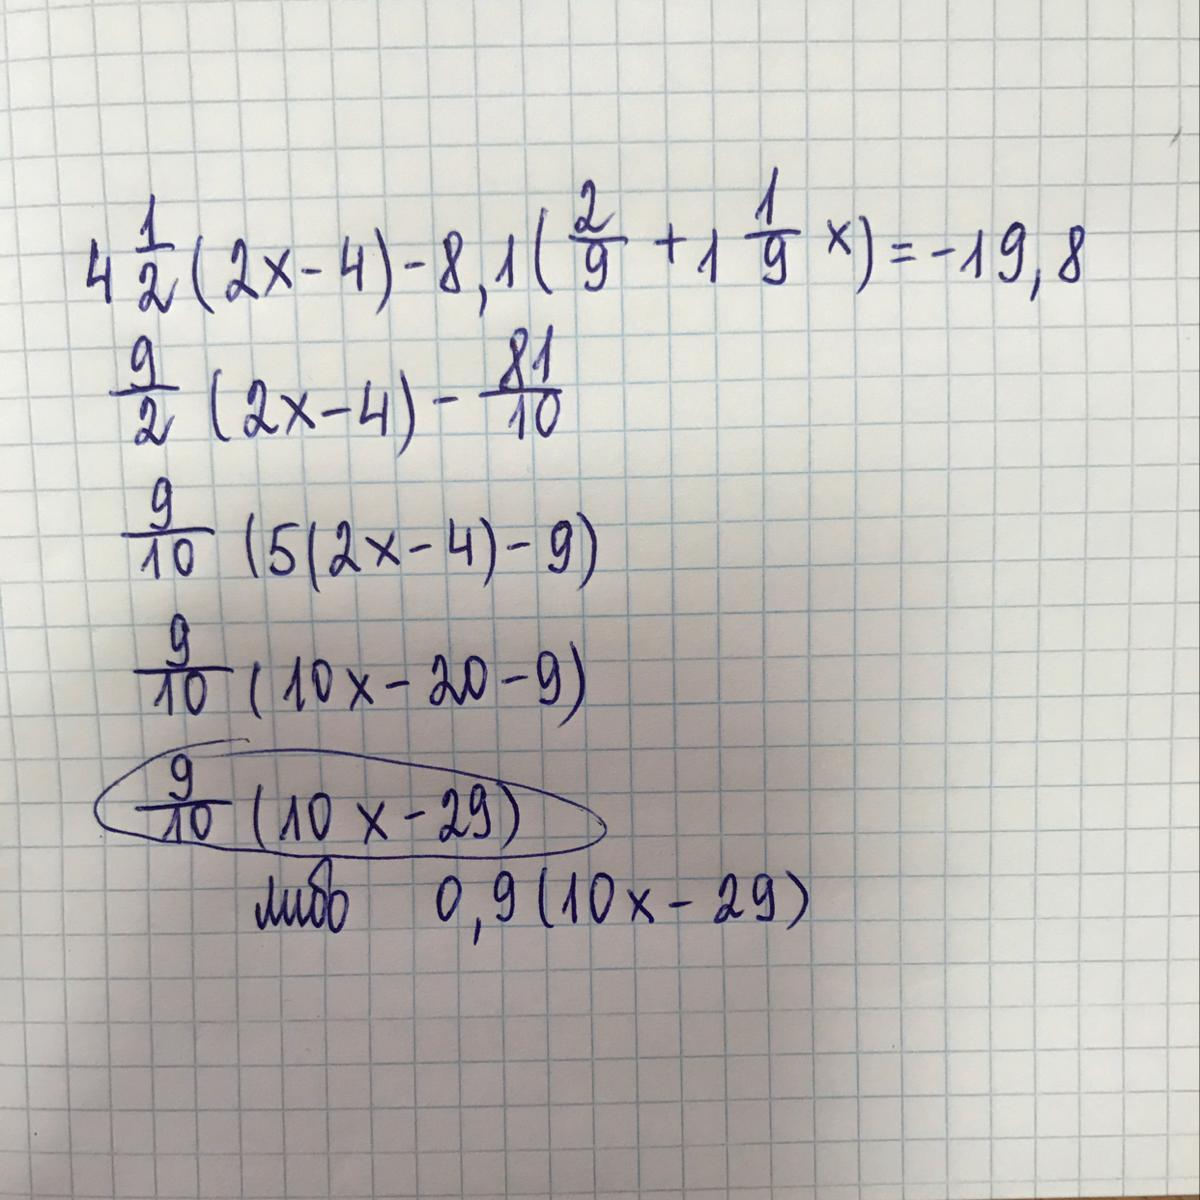 4 1/2 (2x - 4) - 8,1 (2/9 + 1 1/9 x) = -19,8
9/2 (2x - 4) - 81/10
9/10 (5(2x - 4) - 9)
9/10 (10x - 20 - 9)
9/10 (10x - 29)
либо 0,9 (10x - 29)